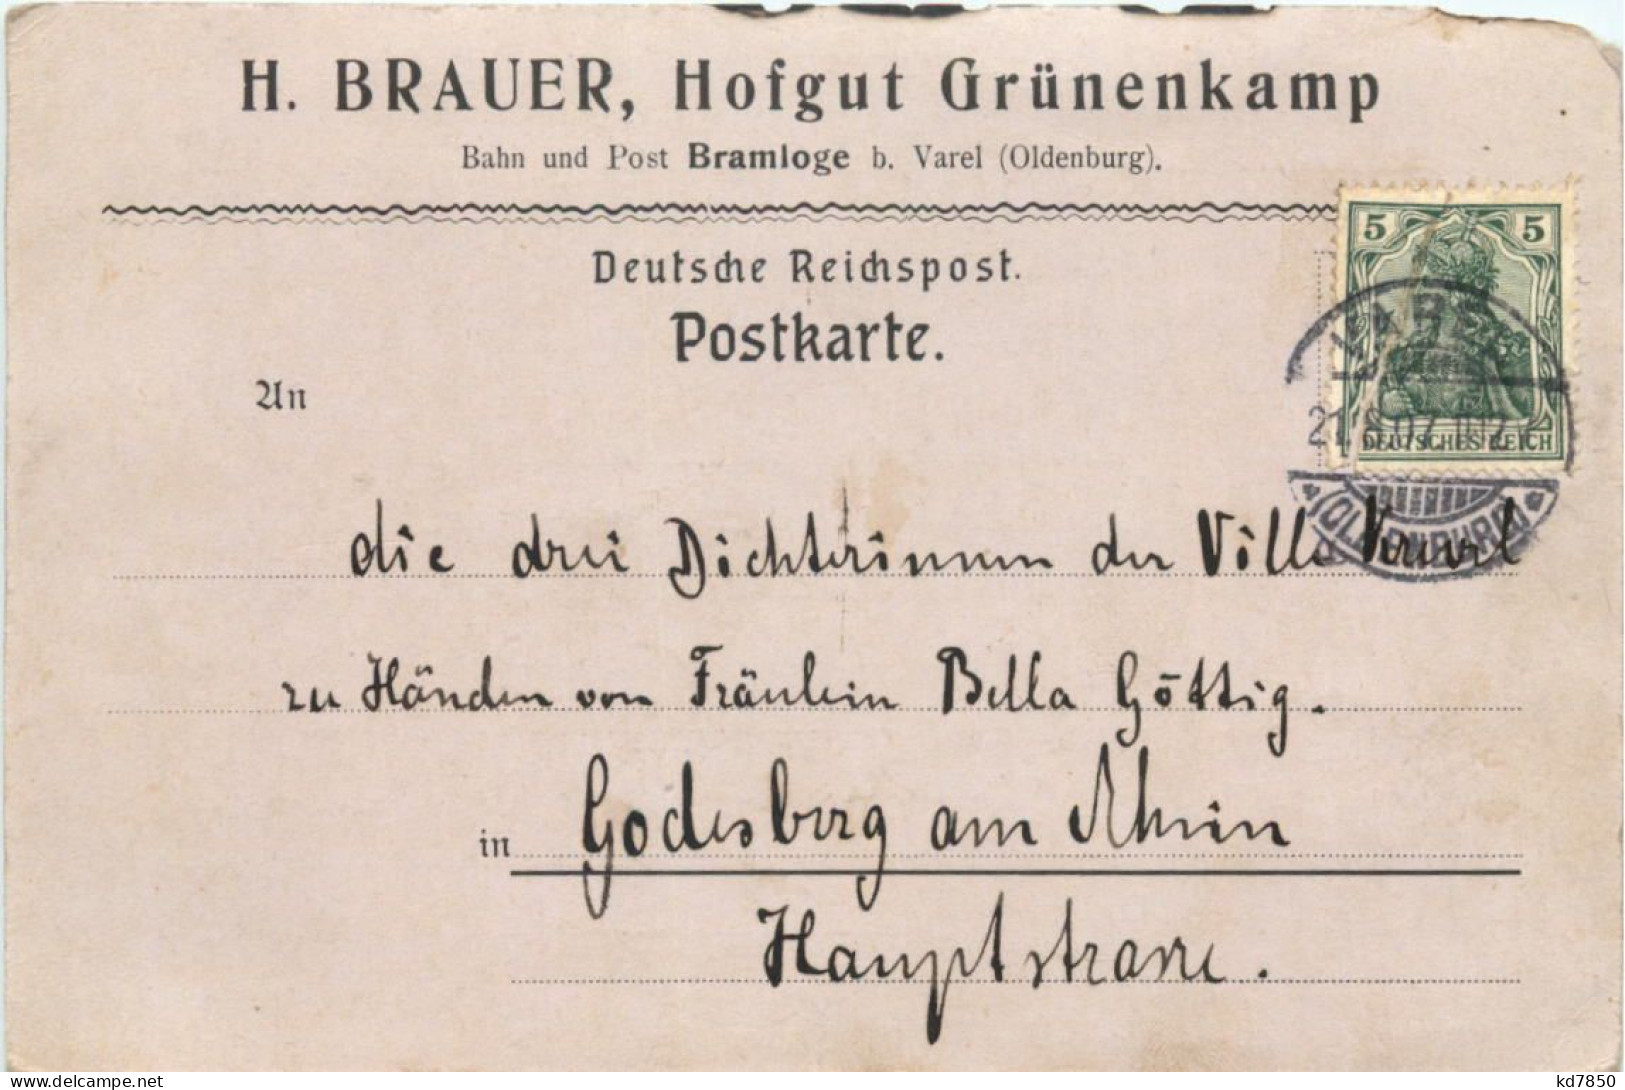 H. BRAUER, Hofgut Grünenkamp
Bahn und Post Bramloge b. Varel (Oldenburg).
5 5
Deutsche Reichspost.
Postkarte.
VAREL
21. 07
DEUTSCHES REICH
(OLDENBURG)
An
die drei Dichterinnen der Villa
zu Händen von Fräulein Bella Göttig.
in Godesberg am Rhein
Hauptstrasse.
www.delcampe.net
kd7850